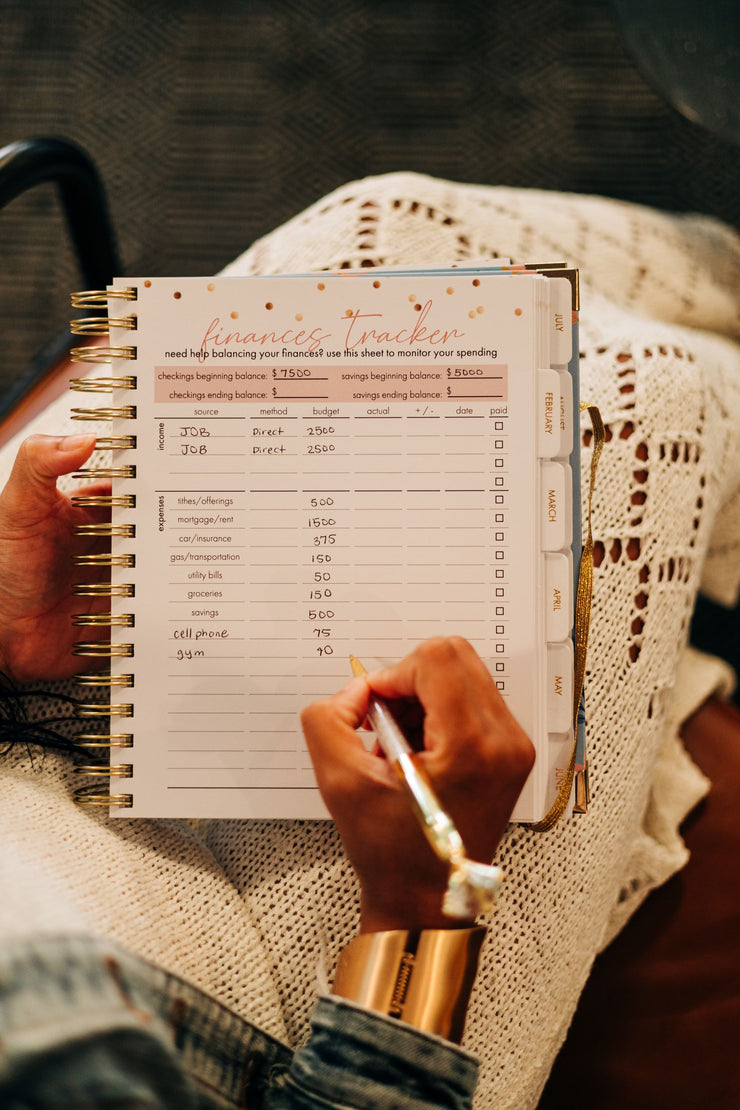 finances Tracker
need help balancing your finances? use this sheet to monitor your spending
checkings beginning balance: $ 7500 savings beginning balance: $ 5000
checkings ending balance: $ savings ending balance: $
source method budget actual + / - date paid
income
JOB Direct 2500
JOB Direct 2500
expenses
tithes/offerings 500
mortgage/rent 1500
car/insurance 375
gas/transportation 150
utility bills 50
groceries 150
savings 500
cell phone 75
gym 90
JULY
FEBRUARY
MARCH
APRIL
MAY
JUNE